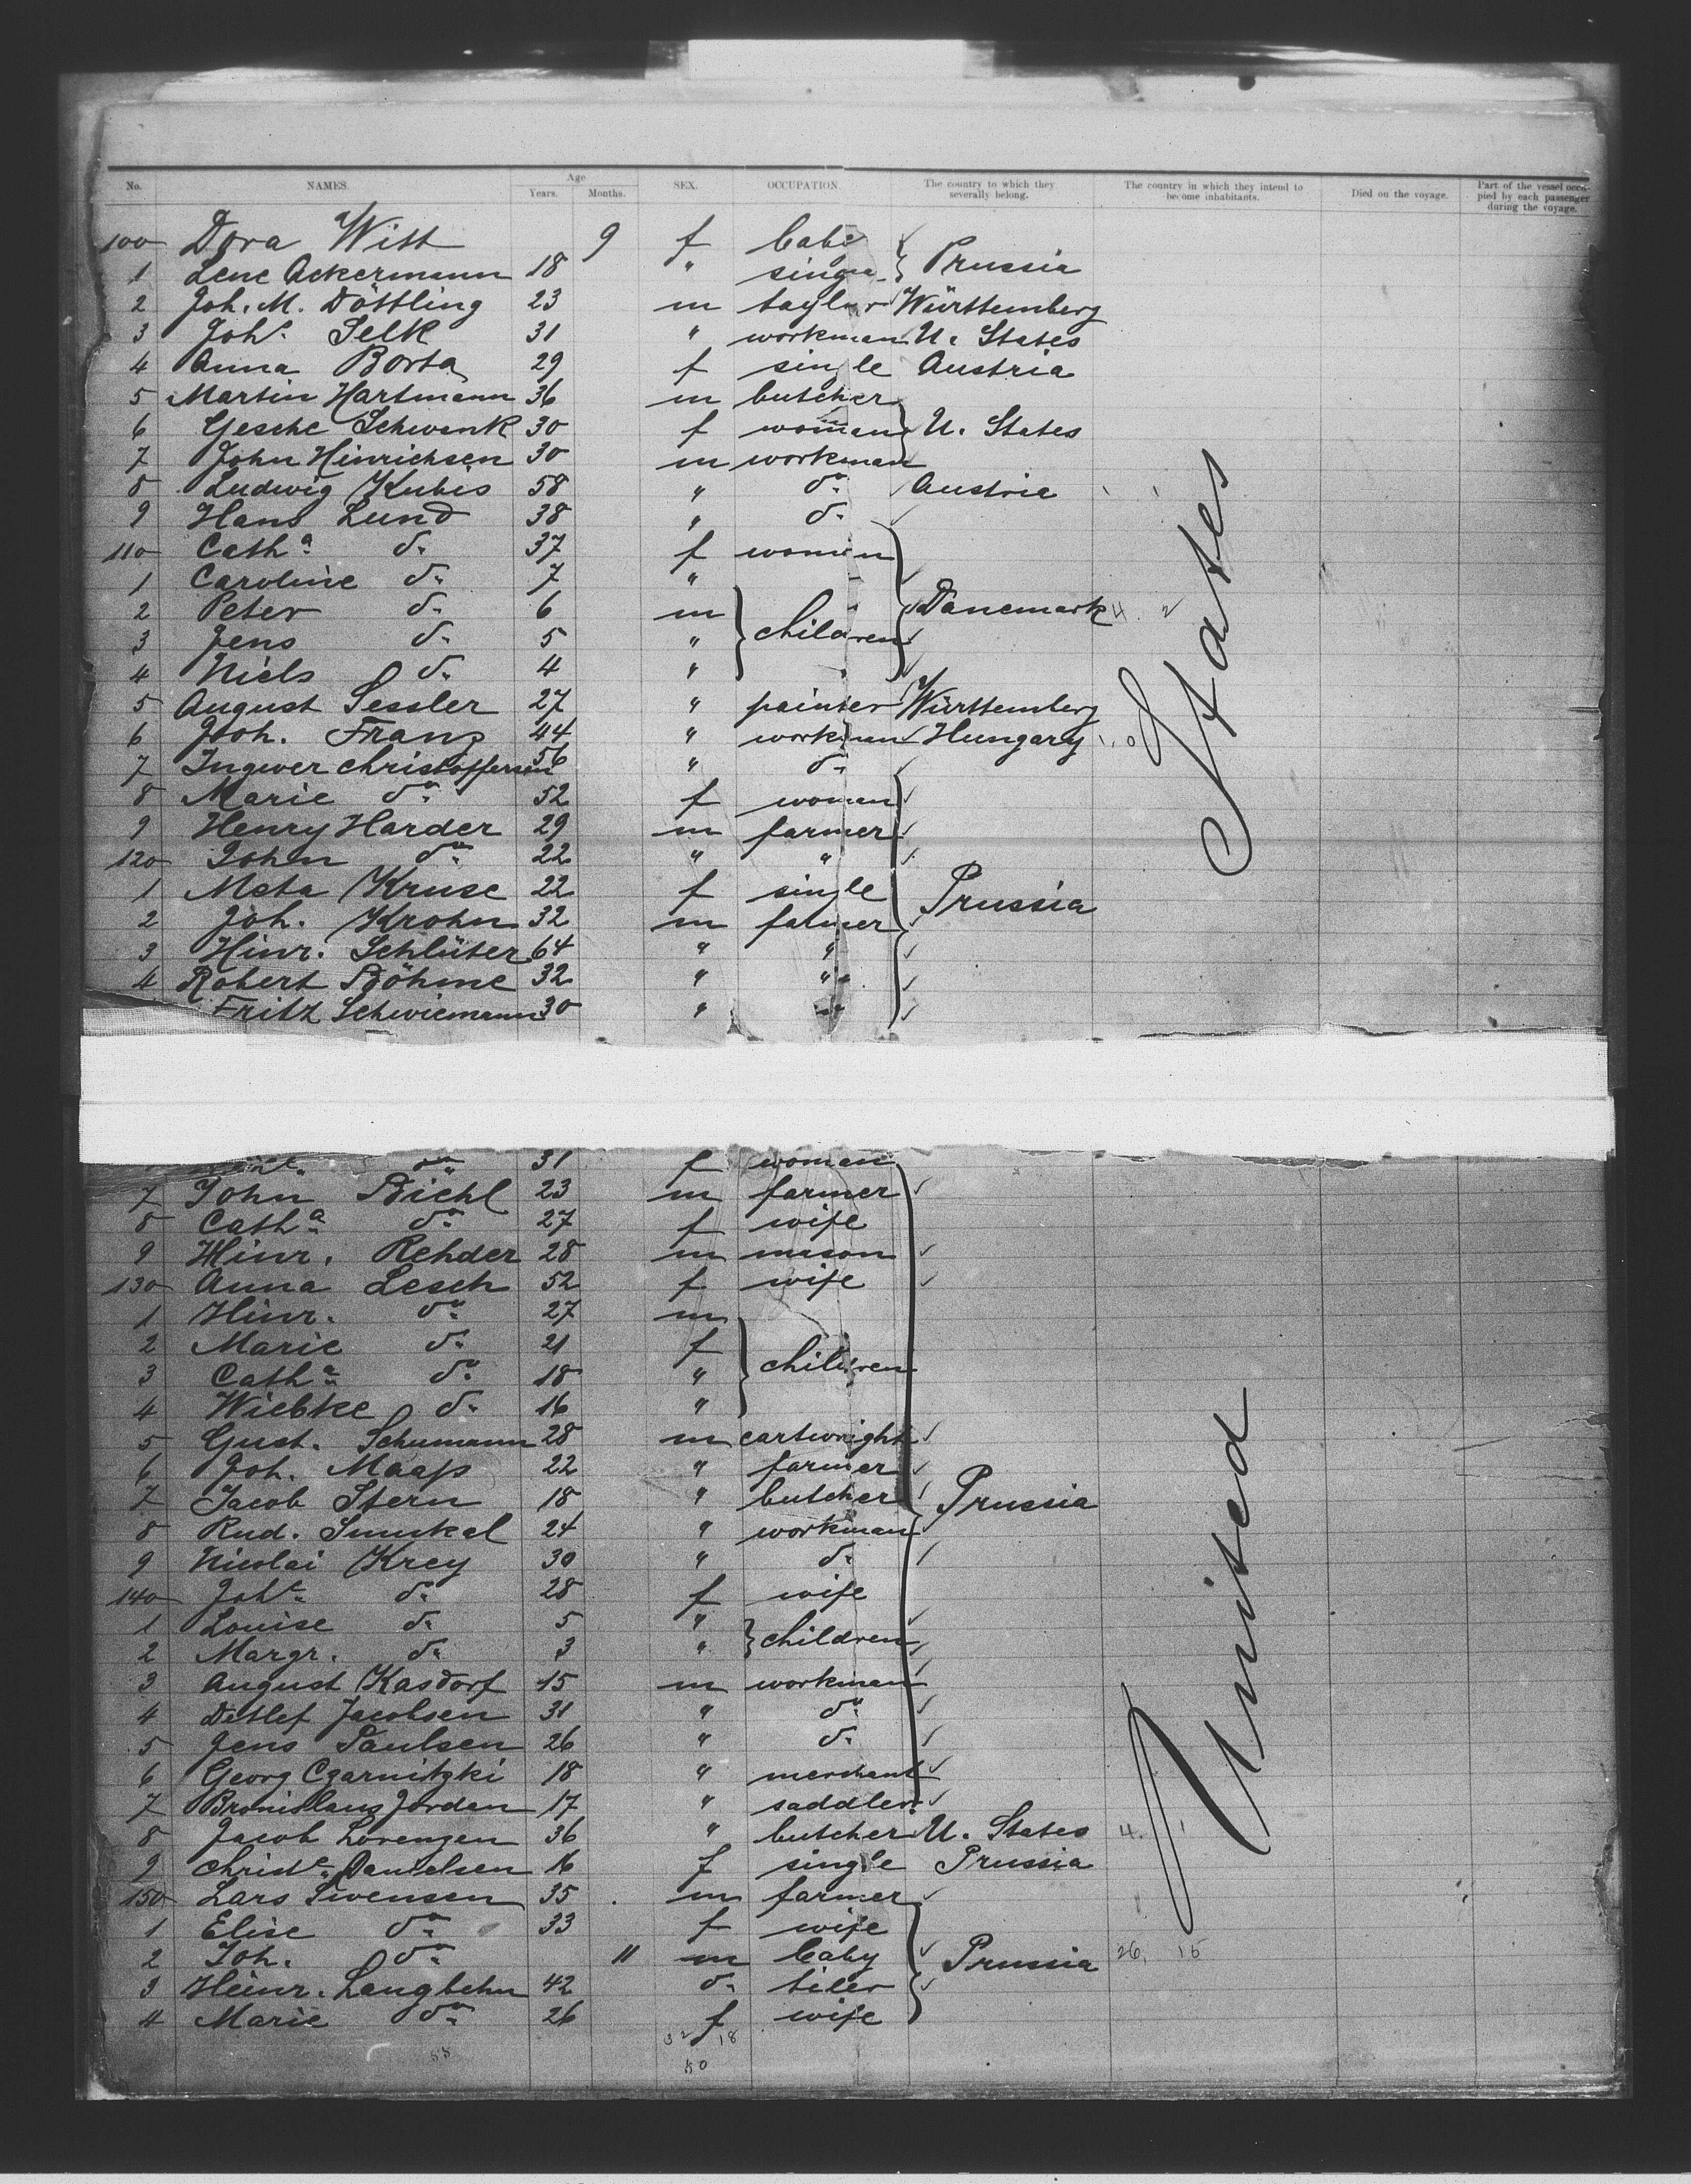 No. NAMES. Age Years. Months. SEX. OCCUPATION. The country to which they severally belong. The country in which they intend to become inhabitants. Died on the voyage. Part of the vessel occupied by each passenger during the voyage.
100 Dora Witt 9 f baby
1 Lene Ackermann 18 " Prussia
2 Joh. M. Döttling 23 m taylor Württemberg
3 Johs. Selk 31 " workman U. States
4 Anna Borta 29 f single Austria
5 Martin Hartmann 36 m butcher
6 Gesche Schwenk 30 f woman U. States
7 John Hinrichsen 30 m workman
8 Ludwig Kubis 58 " do. Austria
9 Hans Lund 38 " do.
110 Catha. do. 37 f women
1 Caroline do. 7 "
2 Peter do. 6 m Danemark 4. 2
3 Jens do. 5 " children
4 Niels do. 4 "
5 August Sessler 27 " painter Württemberg
6 Joh. Franz 44 " workman Hungary
7 Ingwer Christoffersen 56 " do.
8 Marie do. 52 f woman
9 Henry Harder 29 m farmer
120 John do. 22 " "
1 Meta Kruse 22 f single Prussia
2 Joh. Krohn 32 m farmer
3 Hinr. Schlüter 64 " "
4 Robert Böhme 32 " "
Fritz Schwiemann 30 " "
do. 31 f woman
7 John Biehl 23 m farmer
8 Catha. do. 27 f wife
9 Hinr. Rehder 28 m mason
130 Anna Lesch 52 f wife
1 Hinr. do. 27 m
2 Marie do. 21 f
3 Catha. do. 18 " children
4 Wiebke do. 16 "
5 Gust. Schumann 28 m cartwright
6 Joh. Maaß 22 " farmer
7 Jacob Stern 18 " butcher Prussia
8 Rud. 24 " workman
9 Nicolai Krey 30 " do.
140 Johe. do. 28 f wife
1 Louise do. 5 "
2 Margr. do. 3 " children
3 August Kasdorf 15 m workman
4 Detlef Jacobsen 31 " do.
5 Jens Paulsen 26 " do.
6 Georg Czarnitzki 18 " merchant
7 Bronislaus Jordan 17 " saddler
8 Jacob Lorenzen 36 " butcher U. States 4. 1
9 Christe. Danielsen 16 f single Prussia
150 Lars Swensen 35 m farmer
1 Elise do. 33 f wife
2 Joh. do. 11 m baby Prussia 26. 15
3 Heinr. Langbehn 42 do. tiler
4 Marie do. 26 f wife
32 18
50
United States